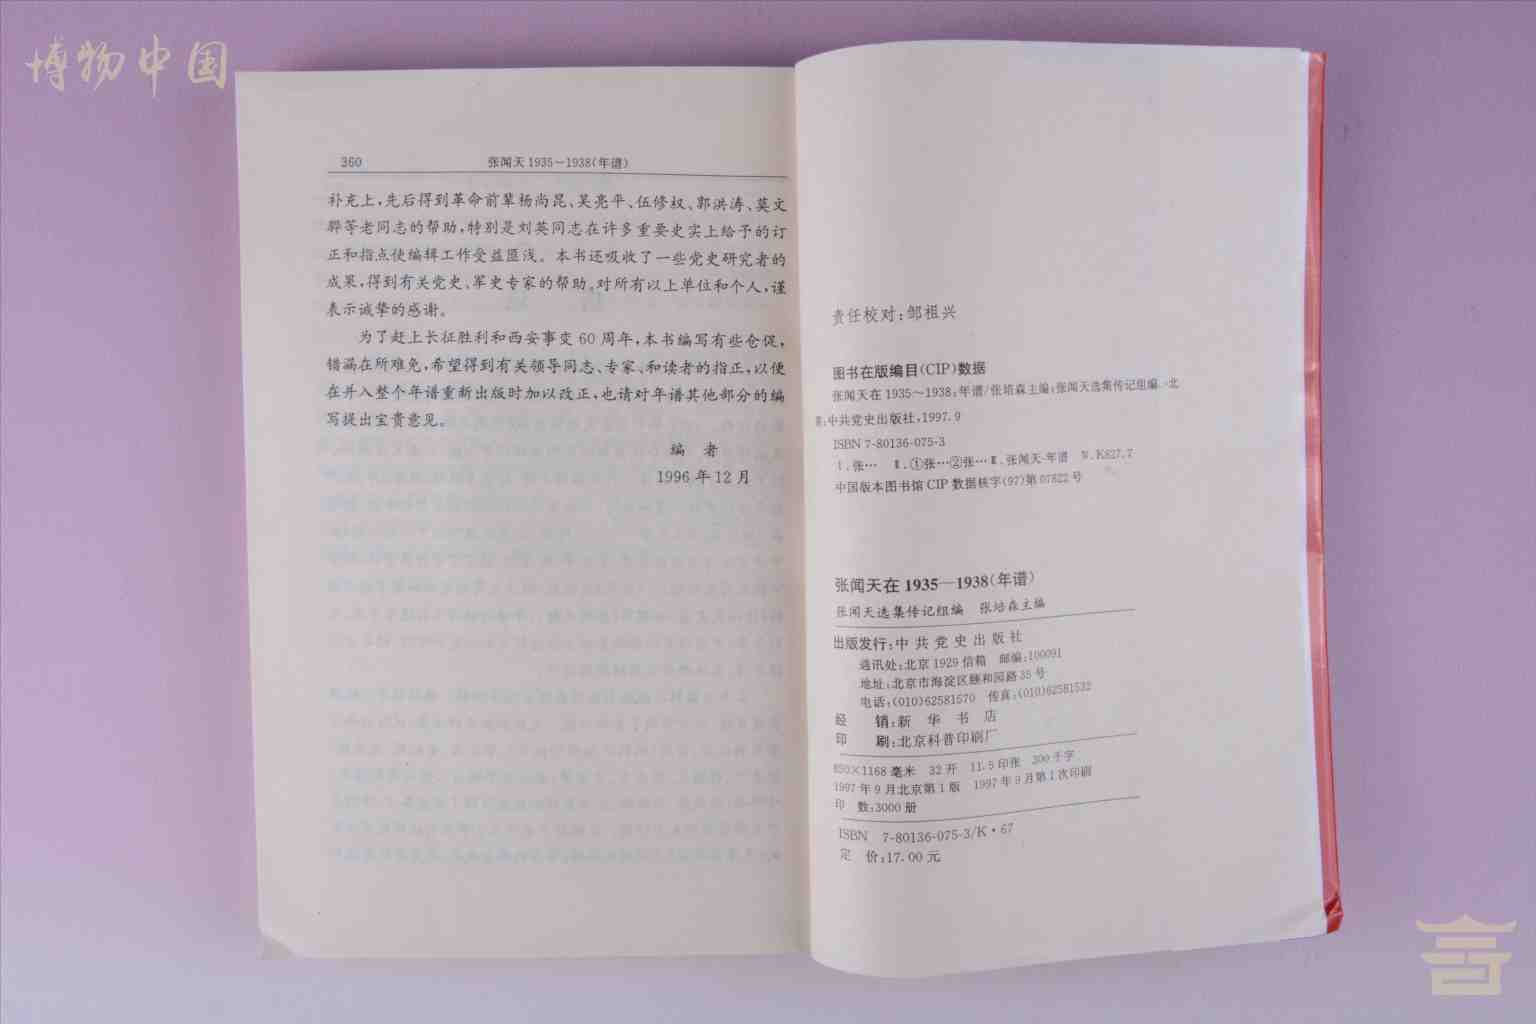 博物中国
360 张闻天1935－1938(年谱)
补充上,先后得到革命前辈杨尚昆、吴亮平、伍修权、郭洪涛、莫文
骅等老同志的帮助,特别是刘英同志在许多重要史实上给予的订
正和指点使编辑工作受益匪浅。本书还吸收了一些党史研究者的
成果,得到有关党史、军史专家的帮助。对所有以上单位和个人,谨
表示诚挚的感谢。
为了赶上长征胜利和西安事变60周年,本书编写有些仓促,
错漏在所难免,希望得到有关领导同志、专家、和读者的指正,以便
在并入整个年谱重新出版时加以改正,也请对年谱其他部分的编
写提出宝贵意见。
编 者
1996年12月
责任校对:邹祖兴
图书在版编目(CIP)数据
张闻天在1935～1938:年谱/张培森主编;张闻天选集传记组编.-北
京:中共党史出版社,1997.9
ISBN 7-80136-075-3
Ⅰ.张… Ⅱ.①张…②张…Ⅲ.张闻天-年谱 Ⅳ.K827.7
中国版本图书馆CIP数据核字(97)第07822号
张闻天在1935—1938(年谱)
张闻天选集传记组编 张培森主编
出版发行:中共党史出版社
通讯处:北京1929信箱 邮编:100091
地址:北京市海淀区颐和园路35号
电话:(010)62581570 传真:(010)62581532
经 销:新华书店
印 刷:北京科普印刷厂
850×1168毫米 32开 11.5印张 300千字
1997年9月北京第1版 1997年9月第1次印刷
印 数:3000册
ISBN 7-80136-075-3/K·67
定 价:17.00元